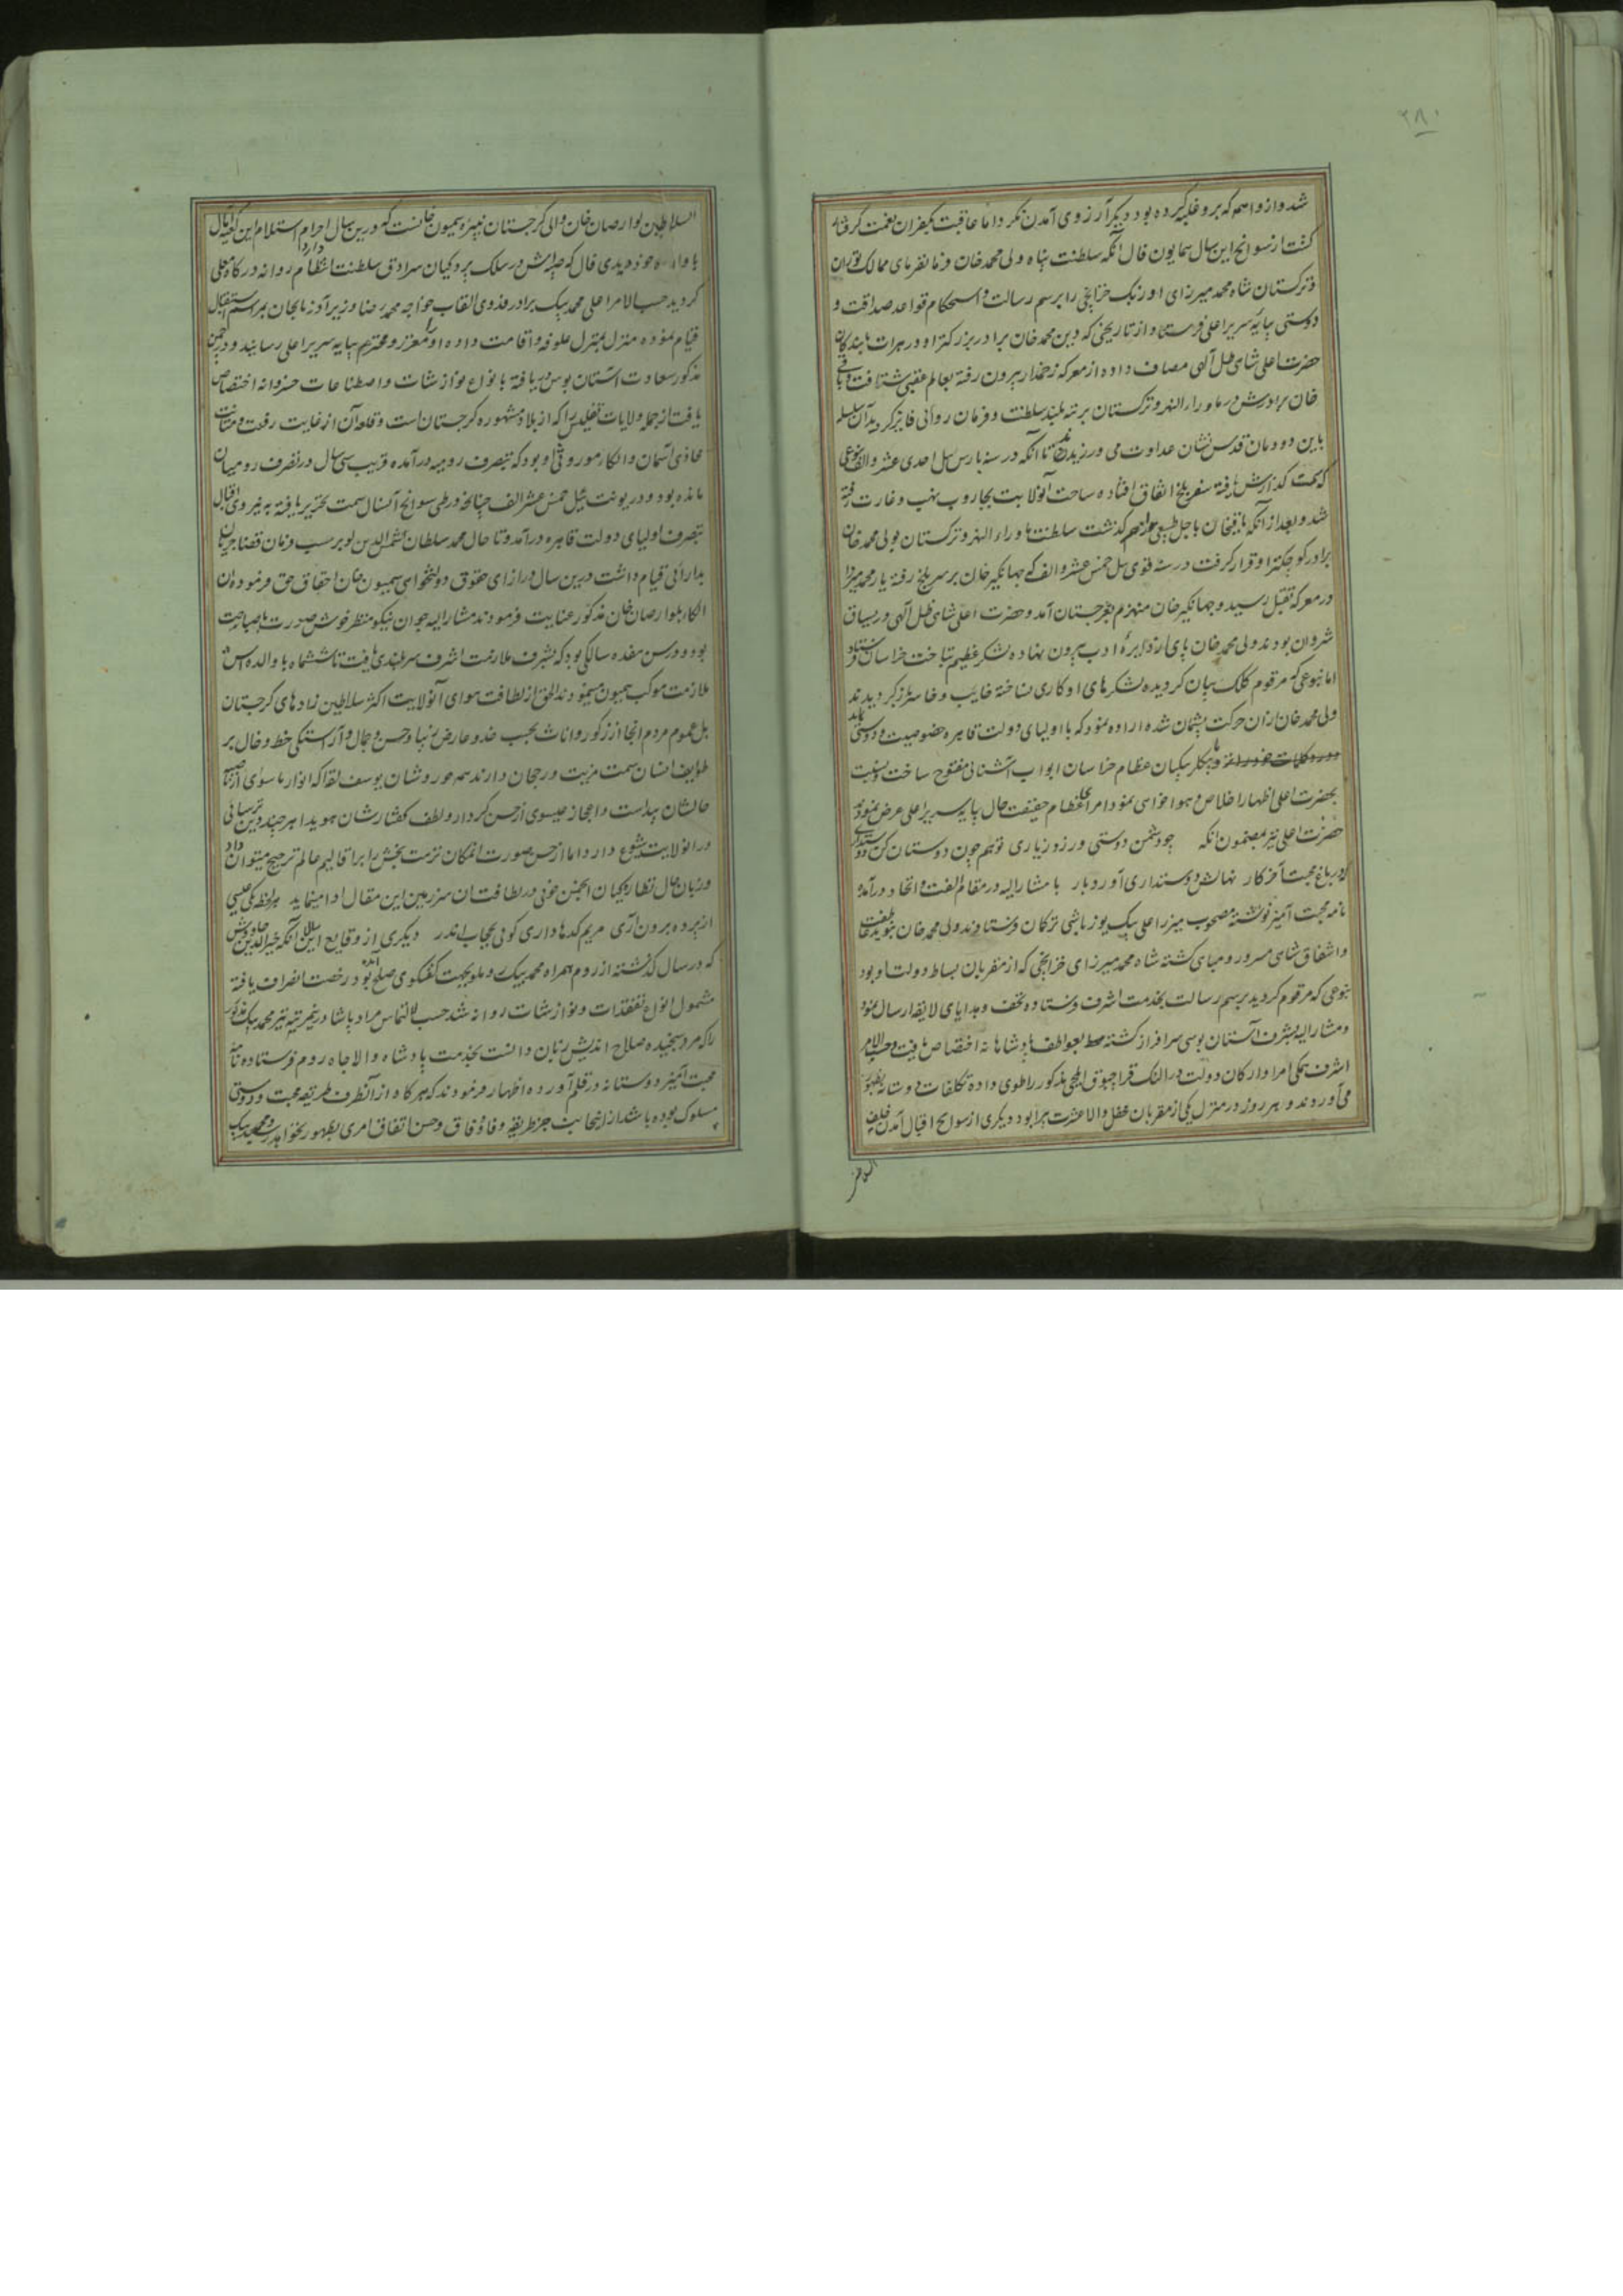 ۲۸۰
شد و از واهمه که برو غلبه کرده بود دیگر آرزوی آمدن نکرد اما عاقبت بکفران نعمت گرفتار
گشت از سوانح این سال همایون فال آنکه سلطنت پناه ولی محمد خان فرمانفرمای ممالک توران
و ترکستان شاه محمد میرزای اوزبک خزانچی را برسم رسالت و استحکام قواعد صداقت و
دوستی بپایه سریر اعلی فرستاد و از تاریخی که دین محمد خان برادر بزرگتر او در هرات با بندگان
حضرت اعلی شاهی ظل الهی مصاف داده از معرکه زخمدار بیرون رفته بعالم عقبی شتافت و باقی
خان برادرش در ماوراء النهر و ترکستان برتبه بلند سلطنت و فرمان روائی فایز گردید آن سلسله
باین دودمان قدس نشان عداوت می ورزیدند تا آنکه در سنه بارس ئیل احدی عشر و الف بنوعی
که سمت گذارش یافته سفر بلخ اتفاق افتاده ساحت آنولایت بجاروب نهب و غارت رفته
شد و بعد از آنکه باقیخان باجل طبیعی در گذشت سلطنت ماوراء النهر و ترکستان بولی محمد خان
برادر کوچکتر او قرار گرفت در سنه قوی ئیل خمس عشر و الف که جهانگیر خان بر سر بلخ رفته یار محمد میرزا
در معرکه بقتل رسید و جهانگیر خان منهزم بغرجستان آمد و حضرت اعلی شاهی ظل الهی در یساق
شروان بودند ولی محمد خان پای از دایرهٔ ادب بیرون نهاده لشکر عظیم بتاخت خراسان فرستاد
اما بنوعی که مرقوم کلک بیان گردیده لشکرهای او کاری نساخته خایب و خاسر باز گردیدند
ولی محمد خان از آن حرکت پشیمان شده اراده نمود که با اولیای دولت قاهره خصوصیت و دوستی نماید
و با بیگلر بیگیان عظام خراسان ابواب آشنائی مفتوح ساخت و نسبت
بحضرت اعلی اظهار اخلاص و هواخواهی نمود امرای عظام حقیقت حال بپایه سریر اعلی عرض نمودند
حضرت اعلی نیز بمضمون آنکه چو دشمن دوستی ورزد ز یاری تو هم چون دوستان کن دوستداری
که در باغ محبت آخر کار نهالش دوستداری آورد بار با مشار الیه در مقام الفت و اتحاد درآمده
نامه محبت آمیز نوشته مصحوب میرزا علی بیک یوزباشی ترکان فرستادند ولی محمد خان
و اشفاق شاهی مسرور و مباهی گشته شاه محمد میرزای خزانچی که از مقربان بساط دولت او بود
بنوعی که مرقوم گردید برسم رسالت بخدمت اشرف فرستاد و تحف و هدایای لایقه ارسال نمود
و مشار الیه بشرف آستان بوسی سرافراز گشته بعواطف پادشاهانه اختصاص یافت و حسب الامر
اشرف همگی امرا و ارکان دولت در النک قراچبوق ایلچی مذکور را طوی داده تکلفات دوستانه بظهور
می آوردند و هر روز در منزل یکی از مقربان محفل والا عشرت پیرا بود دیگری از سوانح اقبال آمدن خلف
السلاطین
السلاطین لوارصاب خان والی گرجستان نبیره سیمون خانست که درین سال احرام استلام این کعبه آمال
با والده خود دیدی فال که در سلک پردگیان سرادق سلطنت انتظام دارد روانه درگاه معلی
گردید حسب الامر اعلی محمد بیک برادر فدوی القاب خواجه محمد رضا وزیر آذربایجان بمراسم استقبال
قیام نموده منزل بمنزل علوفه و اقامت داده او را معزز و محترم بپایه سریر اعلی رسانید و در چمن
مذکور سعادت آستان بوس دریافته بانواع نوازشات و اصطناعات خسروانه اختصاص
یافت از جمله ولایات تفلیس را که از بلاد مشهوره گرجستان است و قلعه آن از غایت رفعت و متانت
محاذی آسمان و الکاء موروثی او بود که بتصرف رومیه درآمده قریب سی سال در تصرف رومیان
مانده بود و در یونت ئیل خمس عشر الف چنانچه در طی سوانح آنسال سمت تحریر یافته به نیروی اقبال
بتصرف اولیای دولت قاهره درآمد و تا حال محمد سلطان شمس الدین لو بر حسب فرمان قضا جریان
بدارائی قیام داشت درین سال در ازای حقوق دولتخواهی سیمون خان احقاق حق فرموده آن
الکا را بلوارصاب خان مذکور عنایت فرمودند مشار الیه جوان نیکو منظر خوش صورت با صباحت
بود و در سن هفده سالگی بود که بشرف ملازمت اشرف سربلندی یافت تا شش ماه با والده اش
ملازمت موکب همیون مینمودند الحق از لطافت هوای آنولایت اکثر سلاطین زادهای گرجستان
بل عموم مردم آنجا از ذکور و اناث بحسب خد و عارض زیبا و حسن و جمال و آراستگی خط و خال بر
طوایف انسان سمت مزیت و رجحان دارند همه حوروشان یوسف لقا که انوار ما سوای از ناصیه
حالشان پیداست و اعجاز عیسوی از حسن کردار و لطف گفتارشان هویدا هر چند دین ترسائی
در آنولایت شیوع دارد اما از حسن صورت آنمکان نزهت بخش را بر اقالیم عالم ترجیح میتوان داد
و زبان حال نظارگیان انجمن خوبی در لطافت آن سرزمین این مقال ادا مینماید هر لحظه یکی عیسی
از پرده برون آری مریم کدها داری گوئی بحجاب اندر دیگری از وقایع این سال آنکه خیر الدین چاوش
که در سال گذشته از روم همراه محمد بیک روملو بجهت گفتگوی صلح آمده بود رخصت انصراف یافته
مشمول انواع تفقدات و نوازشات روانه شد حسب التماس مراد پاشا درین مرتبه نیز محمد بیک مذکور
را که مرد سنجیده صلاح اندیش زبان دانست بخدمت پادشاه والا جاه روم فرستاده نامه
محبت آمیز دوستانه در قلم آورده اظهار فرمودند که هرگاه از آنطرف طریقه محبت و دوستی
مسلوک بوده باشد از اینجانب جز طریقه وفا و وفاق و حسن اتفاق امری بظهور نخواهد رسید محمد بیک